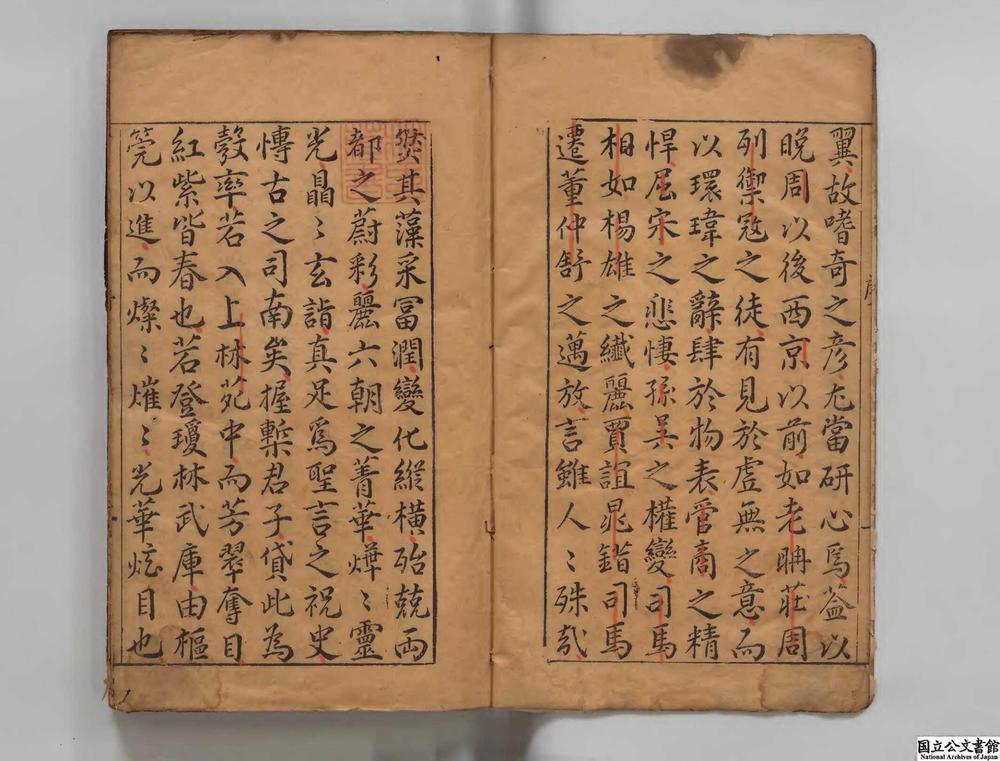 翼故嗜奇之彦尤當研心焉葢以
晩周以後西京以前如老聃莊周
列禦冦之徒有見於虛無之意而
以環瑋之辭肆於物表管商之精
悍屈宋之悲悽孫吴之權變司馬
相如楊雄之纖麗賈誼晁錯司馬
遷董仲舒之邁放言雖人〻殊哉
𤓖其藻采冨潤變化縱横殆兢兩
都之蔚彩麗六朝之菁華燁〻靈
光晶〻玄詣真足爲聖言之祝史
愽古之司南矣握槧君子貸此為
彀率若入上林苑中而芳翠奪目
紅紫皆春也若登瓊林武庫由樞
筦以進而燦〻㸌〻光華炫目也
國立公文書館
National Archives of Japan